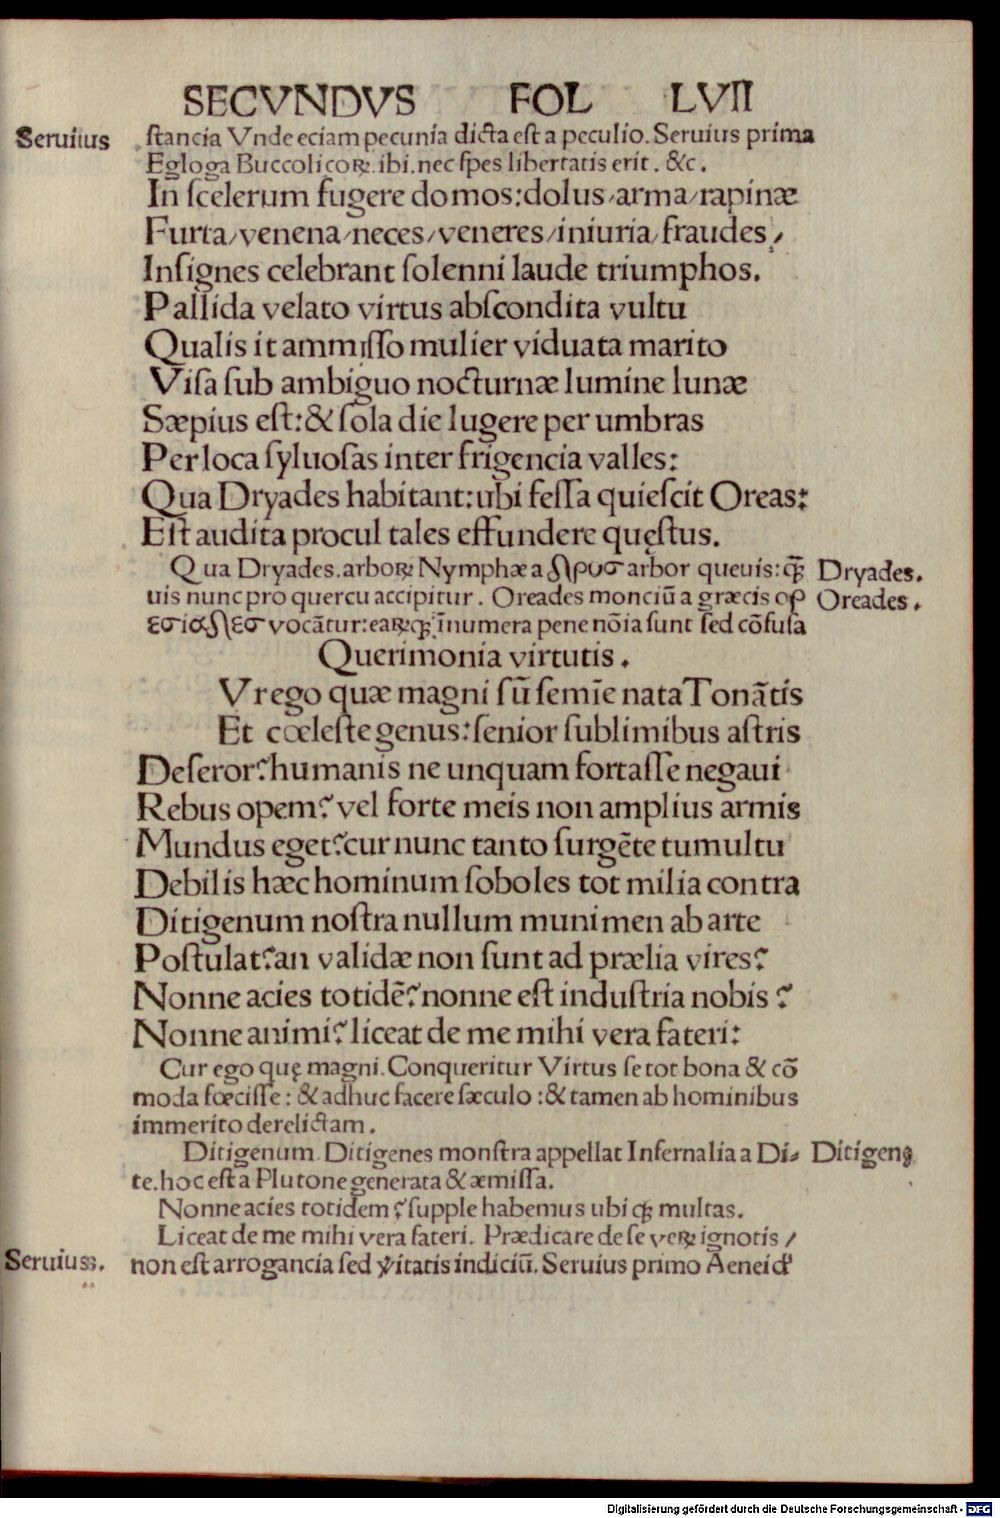 SECVNDVS FOL LVII
Seruius ſtancia Vnde eciam pecunia dicta eſt a peculio. Seruius prima
Egloga Buccolicoꝝ. ibi. nec ſpes libertatis erit . &c .
In ſcelerum fugere domos: dolus/arma/rapinæ
Furta/venena/neces/veneres/iniuria/fraudes/
Inſignes celebrant ſolenni laude triumphos.
Pallida velato virtus abſcondita vultu
Qualis it ammiſſo mulier viduata marito
Viſa ſub ambiguo nocturnæ lumine lunæ
Sæpius eſt: & ſola die lugere per umbras
Per loca ſyluoſas inter frigencia valles:
Qua Dryades habitant: ubi feſſa quieſcit Oreas:
Eſt audita procul tales effundere quęſtus.
Qua Dryades. arboꝝ Nymphæ a δρυσ arbor queuis: qͣꝫ Dryades.
uis nunc pro quercu accipitur . Oreades monciū a græcis ορ Oreades.
εσιαδεσ vocātur: eaꝝqꝫ īnumera pene nōia ſunt ſed cōfuſa
Querimonia virtutis .
Vr ego quæ magni ſū ſemīe nata Tonātis
Et cœleſte genus: ſenior ſublimibus aſtris
Deferor? humanis ne unquam fortaſſe negaui
Rebus opem? vel forte meis non amplius armis
Mundus eget? cur nunc tanto ſurgēte tumultu
Debilis hæc hominum ſoboles tot milia contra
Ditigenum noſtra nullum munimen ab arte
Poſtulat? an validæ non ſunt ad prælia vires?
Nonne acies totidē? nonne eſt induſtria nobis ?
Nonne animi? liceat de me mihi vera fateri:
Cur ego quę magni. Conqueritur Virtus ſe tot bona & cō
moda fœciſſe : & adhuc facere ſæculo : & tamen ab hominibus
immerito derelictam .
Ditigenum. Ditigenes monſtra appellat Infernalia a Di⸗ Ditigenꝯ
te. hoc eſt a Plutone generata & æmiſſa.
Nonne acies totidem ? ſupple habemus ubiqꝫ multas.
Liceat de me mihi vera fateri. Prædicare de ſe veꝝ ignotis /
Seruius. non eſt arrogancia ſed v̓itatis indiciū. Seruius primo Aeneid̓
Digitalisierung gefördert durch die Deutsche Forschungsgemeinschaft - DFG